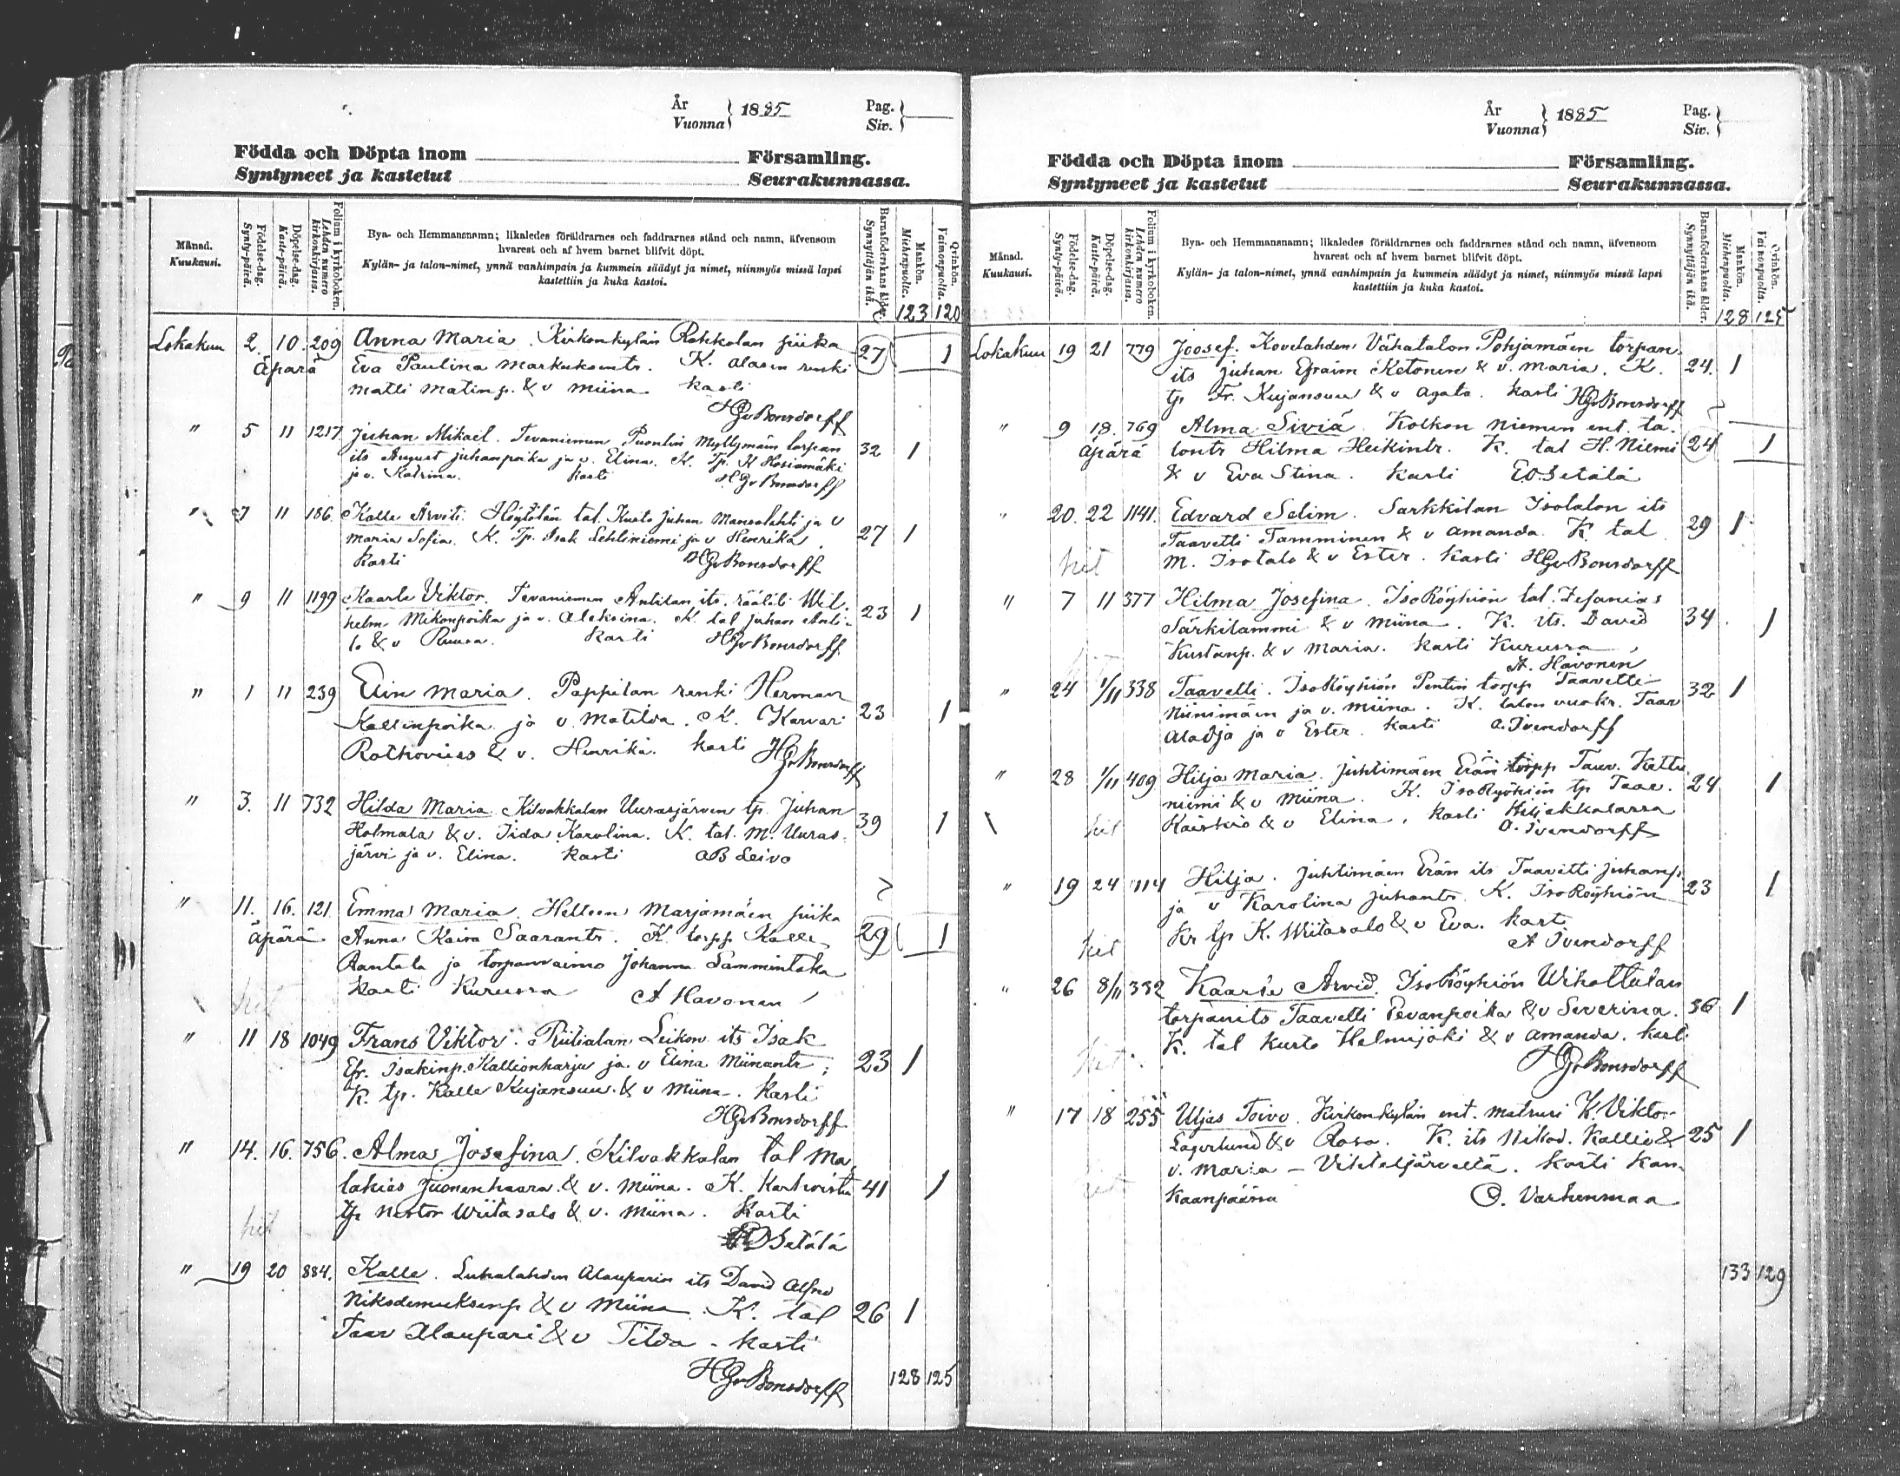 År
Vuonna } 1885
Pag.
Siv. }
Födda och Döpta inom Församling.
Syntyneet ja kastetut Seurakunnassa.
Månad.
Kuukausi.
Födelse-dag.
Synty-päivä.
Döpelse-dag.
Kaste-päivä.
Folium i kyrkoboken.
Lehden numero kirkonkirjassa.
Bya- och Hemmansnamn; likaledes föräldrarnes och faddrarnes stånd och namn, äfvensom
hvarest och af hvem barnet blifvit döpt.
Kylän- ja talon-nimet, ynnä vanhimpain ja kummein säädyt ja nimet, niinmyös missä lapsi
kastettiin ja kuka kastoi.
Barnaföderskans ålder.
Synnyttäjän ikä.
Mankön.
Miehenpuolta.
Qvinkön.
Vaimonpuolta.
123 120
Lokakuu 2 10 209 Anna Maria. Kirkonkylän Rokkolan piika 27 1
Äpärä Eva Paulina Markuksentr. K. Alasen renki
Matti Matinp. & v Miina kasti
HGvBonsdorff
" 5 11 1217 Juhan Mikael. Tevaniemen Puontin Myllymäin torpan 32 1
its August Juhanpoika ja v. Elina. K. Tp. K Hosiamäki
ja v. Katrina. kasti HGvBonsdorff
" 7 11 186 Kalle Arviti. Höytölän tal. Kusto Juhan Mansolahti ja v 27 1
Maria Sofia. K. Tp. Isak Lehtiniemi ja v Henrika
kasti HGvBonsdorff
" 9 11 1199 Kaarle Viktor. Tevaniemen Anttilan its. räätäli Wil- 23 1
helm Mikonpoika ja v. Aleksina. K. tal Juhan Antti-
la & v Ruusa. kasti HGvBonsdorff
" 1 11 239 Elin Maria. Pappilan renki Herman 23 1
Kallenpoika ja v. Matilda. K. Karvari
Rothovius & v. Henrika. kasti HGvBonsdorff
" 3. 11 732 Hilda Maria Kilvakkalan Uurasjärven tp. Juhan 39 1
Holmala & v. Iida Karolina. K. tal. M. Uuras-
järvi ja v. Elina. kasti OB Leivo
" 11. 16. 121 Emma Maria. Helteen Marjamäen piika 29 1
Äpärä Anna Kaisa Saarantr. K. torpp Kalle
Rantala ja torpanvaimo Johanna Lamminlaka
kasti Kurussa A Havonen
hit
" 11 18 1049 Frans Viktor. Riitialan Leikon its Isak 23 1
Efr. Isakinp. Kallionharju ja v Elina Miinantr;
K. tp. Kalle Kujansuu & v Miina. kasti
HGvBonsdorff
" 14. 16. 756. Alma Josefina. Kilvakkalan tal Ma- 41 1
lakias Juonenhaara & v. Miina. K. Karhoistu
tp Nestor Wiitasalo & v. Miina. kasti
hit
EO Setälä
" 19 20 884. Kalle. Luhalahden Alauparin its David Alfred 26 1
Nikodemuksenp & v Miina. K. tal
Taav Alaupari & v Tilda. kasti
HGvBonsdorff
128 125
År
Vuonna } 1885
Pag.
Siv. }
Födda och Döpta inom Församling.
Syntyneet ja kastetut Seurakunnassa.
Månad.
Kuukausi.
Födelse-dag.
Synty-päivä.
Döpelse-dag.
Kaste-päivä.
Folium i kyrkoboken.
Lehden numero kirkonkirjassa.
Bya- och Hemmansnamn; likaledes föräldrarnes och faddrarnes stånd och namn, äfvensom
hvarest och af hvem barnet blifvit döpt.
Kylän- ja talon-nimet, ynnä vanhimpain ja kummein säädyt ja nimet, niinmyös missä lapsi
kastettiin ja kuka kastoi.
Barnaföderskans ålder.
Synnyttäjän ikä.
Mankön.
Miehenpuolta.
Qvinkön.
Vaimonpuolta.
128 125
Lokakuu 19 21 779 Joosef. Kovelahden Vähätalon Pohjamäen torpan 24. 1
its Juhan Efraim Ketonen & v. Maria. K.
tp Fr. Kujansuu & v Agata. kasti HGvBonsdorff
" 9 18. 769 Alma Siviä. Kolkon niemen ent. ta- 24 1
Äpärä lontr Hilma Heikintr. K. tal H. Niemi
& v Eva Stina. kasti EO Setälä
" 20. 22 1141. Edvard Selim. Sarkkilan Isotalon its 29 1
Taavetti Tamminen & v Amanda. K. tal
hit M. Isotalo & v Ester. kasti HGvBonsdorff
" 7 11 377 Hilma Josefina. IsoRöyhiön tal. Zefanias 34 1
Särkilammi & v Miina. K. its. David
Kustanp. & v Maria. kasti Kurussa
A. Havonen
" 24 1/11 338 Taavetti. IsoRöyhiön Pentin torpp Taavetti 32 1
Niinimäen ja v. Miina. K. talon vuokr. Taav
Alaoja ja v Ester. kasti A. Ivendorff
" 28 1/11 409 Hilja Maria. Juhtimäen Erän torpp Taav. Kattu- 24 1
niemi & v Miina. K. IsoRöyhiön tp Taav.
hit Kaiskio & v Elina. kasti Kiljakkalassa
A. Ivendorff
" 19 24 1114 Hilja. Juhtimäen Erän its Taavetti Juhanp. 23 1
ja v Karolina Juhantr. K. IsoRöyhiön
hit Kr tp K. Wiitasalo & v Eva. kasti
A Ivendorff
" 26 8/11 332 Kaarle Arvid. IsoRöyhiön Wihattulan 36 1
torpanits Taavetti Eevanpoika & v Severina.
hit K. tal Kusto Helmijoki & v Amanda. kasti
HGvBonsdorff
" 17 18 255 Uljas Toivo. Kirkonkylän ent. matruusi K. Vikto- 25 1
Lagerlund & v Rosa. K. its Nikod. Kallio &
hit v. Maria – Vihteljärveltä. kasti Kan-
kaanpäässä O. Varhenmaa
133 129